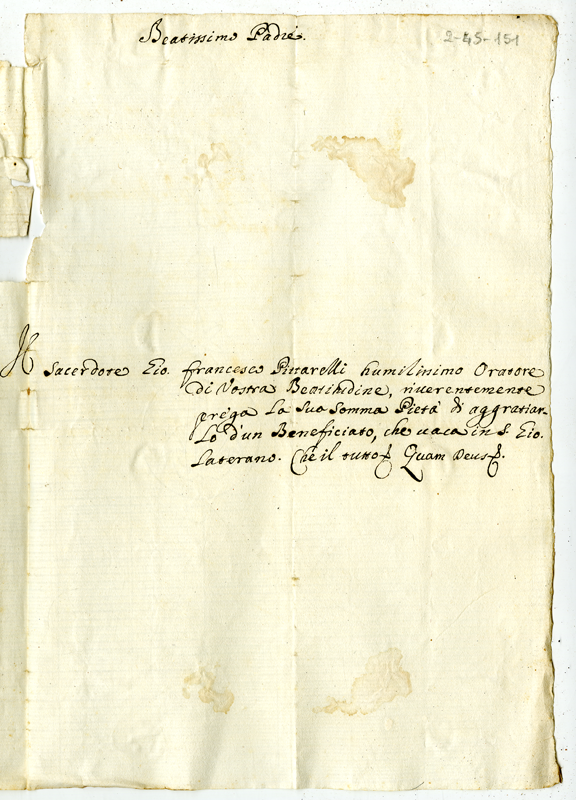 Beatissimo Padre.
2-45-151
Il Sacerdote Gio. Francesco Pittarelli humilissimo Oratore
di Vostra Beatitudine, riverentemente
prega la sua somma Pietà di aggratiar-
lo d'un Beneficiato, che vaca in S. Gio.
Laterano. Che il tutto Quam Deus